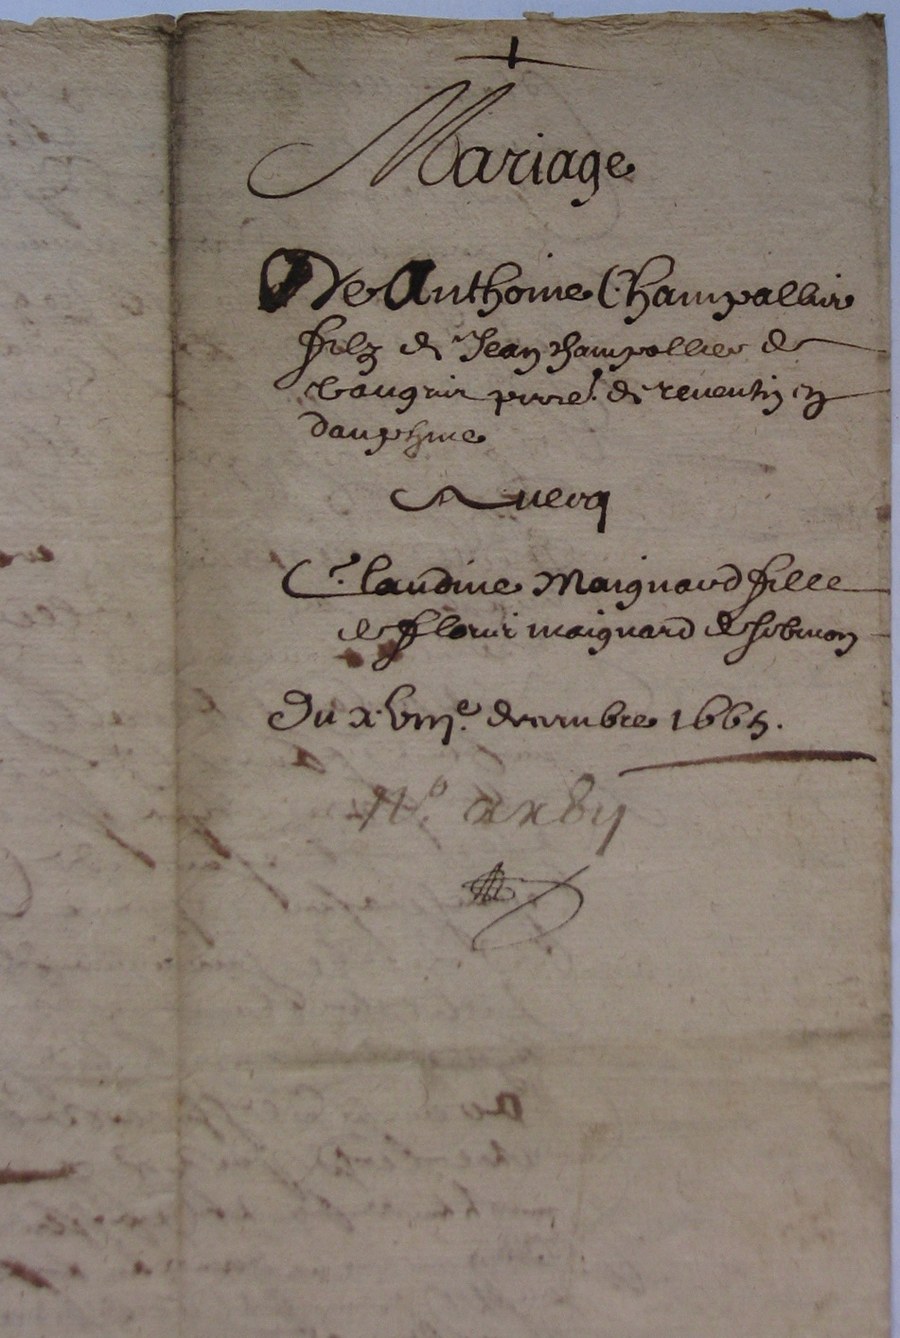 Mariage
De Anthoine Champallier
filz de Jean champallier de
vaugris parre. de reventin en
dauphine
Avecq
Claudine Maignard fille
de fleuri maignard de
Du xviiie. decembre 1665.
No. xxvi